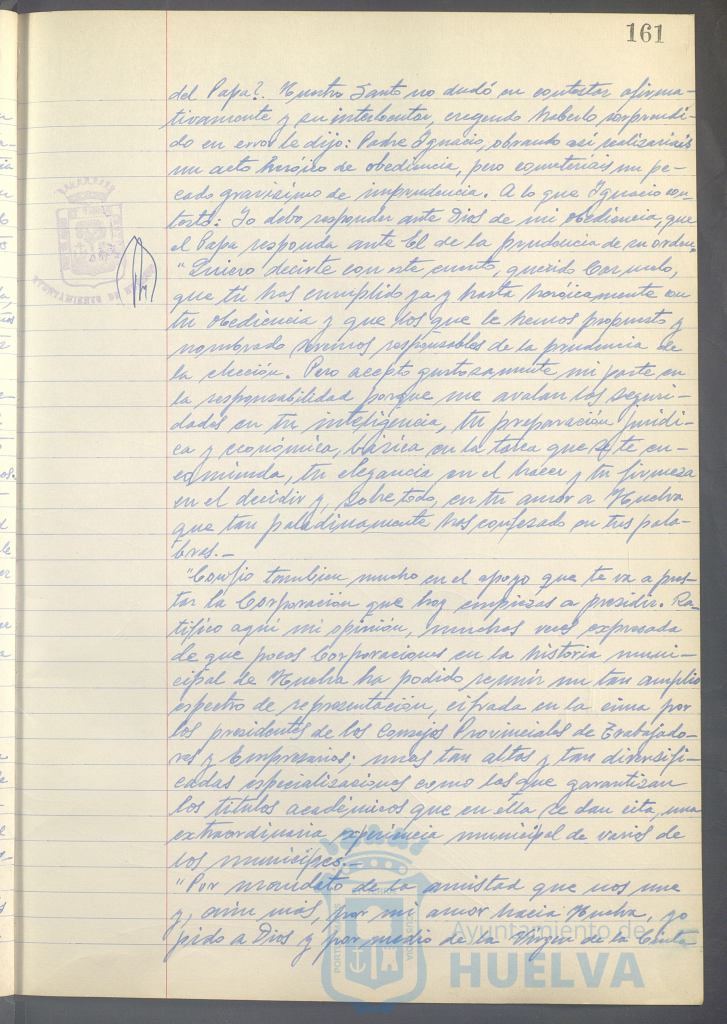 161
del Papa?. Nuestro Santo no dudó en contestar afirma-
tivamente y su interlocutor, creyendo haberlo sorprendi-
do en error le dijo: Padre Ignacio, obrando así realizariais
un acto heróico de obediencia, pero cometeriais un pe-
cado gravisimo de imprudencia. A lo que Ignacio con-
testó: Yo debo responder ante Dios de mi obediencia, que
el Papa responda ante El de la prudencia de su orden.
"Quiero decirte con este cuento, querido
que tú has cumplido ya y hasta heróicamente con
tu obediencia y que los que te hemos propuesto y
nombrado seremos responsables de la prudencia de
la elección. Pero acepto gustosamente mi parte en
la responsabilidad porque me avalan las seguri-
dades en tu inteligencia, tu preparación juridi-
ca y económica, básica en la tarea que se te en-
comienda, tu elegancia en el hacer y tu firmeza
en el decidir y, sobre todo, en tu amor a Huelva
que tan paladinamente has confesado en tus pala-
bras.-
"Confio tambien mucho en el apoyo que te va a pres-
tar la Corporación que hoy empiezas a presidir. Ra-
tifico aqui mi opinión, muchas veces expresada
de que pocas Corporaciones en la historia muni-
cipal de Huelva ha podido reunir un tan amplio
espectro de representación, cifrada en la cima por
los presidentes de los Consejos Provinciales de Trabajado-
res y Empresarios; unas tan altas y tan diversifi-
cadas especializaciones como las que garantizan
los titulos académicos que en ella se dan cita, una
extraordinaria experiencia municipal de varios de
los munícipes.-
"Por mandato de la amistad que nos une
y, aún más, por mi amor hacia Huelva, yo
pido a Dios y por medio de la Virgen de la Cinta
Ayuntamiento de
HUELVA